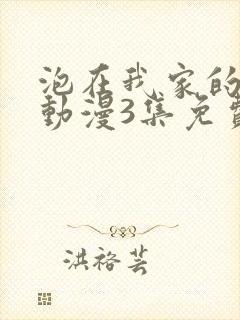 泡在我家的
動漫3集免費
洪裕芸